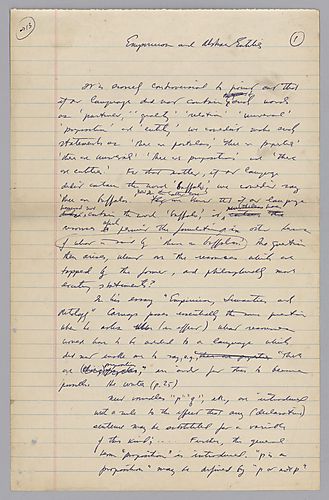 Empiricism and Abstract Entities
1
It is scarcely controversial to point out that
if our language did not contain such words
as 'particular,' 'quality' 'relation' 'universal'
'proposition' or 'entity,' we couldn't make such
statements as 'there are particulars' 'there are properties'
'there are universals' 'there are propositions' and 'there
are entities.' For that matter, if our language
didn't contain the word 'buffalo,' we couldn't say
'there are buffalo.' if our language
contain the word 'buffalo'
resources to permit the formulation in other terms
of what is said by 'there are buffalo.' The question
then arises, what are the resources which are
tapped by the former, and philosophically more
exciting statements?
In his essay "Empiricism, Semantics, and
Ontology" Carnap poses essentially the same question
when he asks (in effect) what resources
would have to be added to a language which
did not enable one to say, e.g., "There
are propositions," in order for this to become
possible. He writes (p. 25)
New variables 'p' 'q', etc., are introduced
with a rule to the effect that any (declarative)
sentence may be substituted for a variable
of this kind; .... Further, the general
term "proposition" is introduced. "p is a
proposition" may be defined by "p or not p"